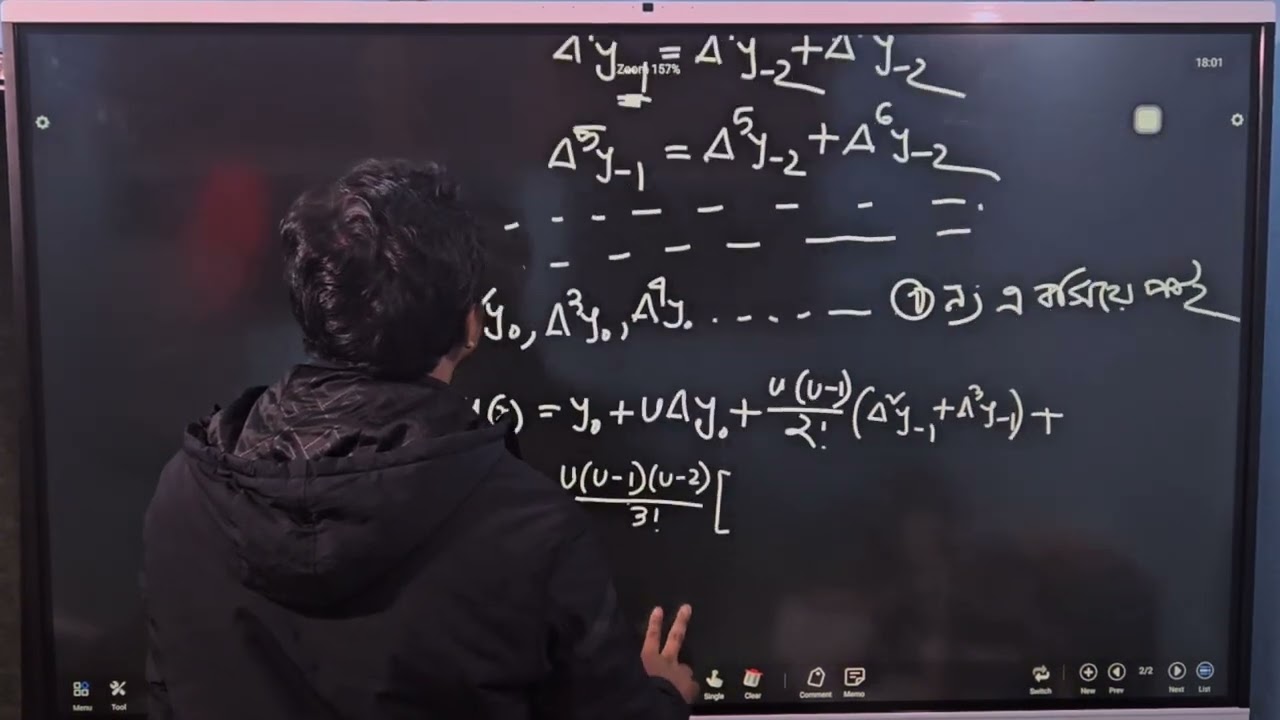 Δ y₋₁ = Δ y₋₂ + Δ y₋₂
Zoom 157%
18:01
Δ⁵y₋₁ = Δ⁵y₋₂ + Δ⁶y₋₂
y₀, Δ³y₀, Δ⁴y₀ ..... — ① নং এ বসিয়ে পাই
= y₀ + UΔy₀ + U(U-1)/2! (Δ²y₋₁ + Δ³y₋₁) +
U(U-1)(U-2)/3! [
Menu Tool Single Clear Comment Memo Switch New Prev 2/2 Next List